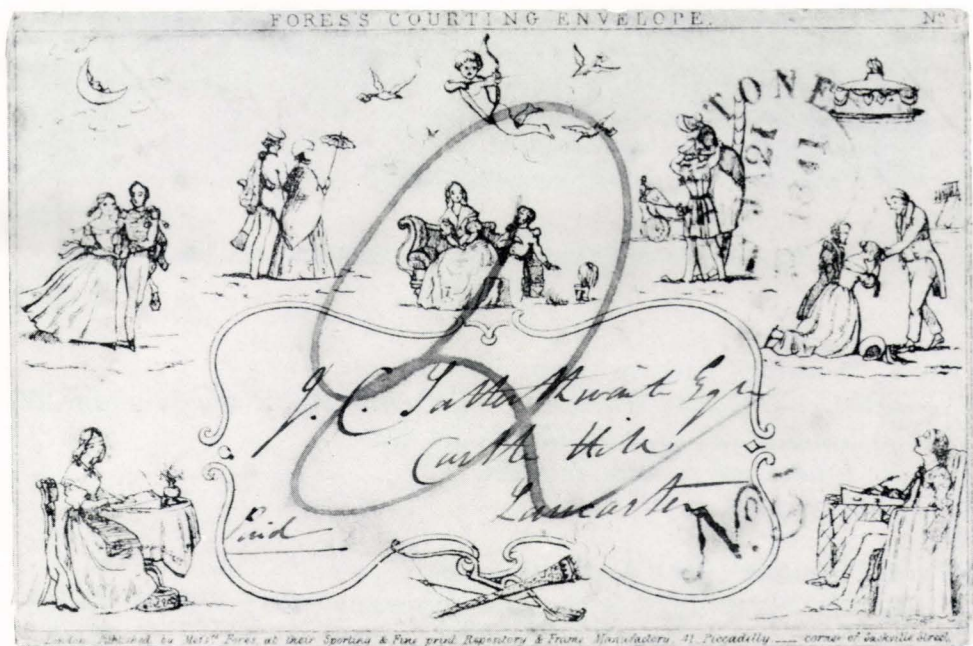 FORES'S COURTING ENVELOPE. No
TONE
21
1841
J. C. Satterthwaite Esqre
Castle Hill
Lancaster
Paid
No.
London Published by Messrs Fores at their Sporting & Fine print Repository & Frame Manufactory, 41, Piccadilly corner of Sackville Street